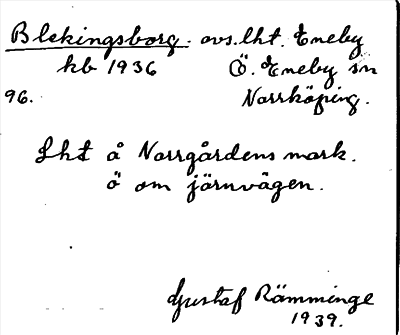 Blekingsborg. avs.lht. Eneby
kb 1936 Ö. Eneby sn
96. Norrköping.
Lht å Norrgårdens mark.
ö om järnvägen.
Gustaf Rämminge
1939.